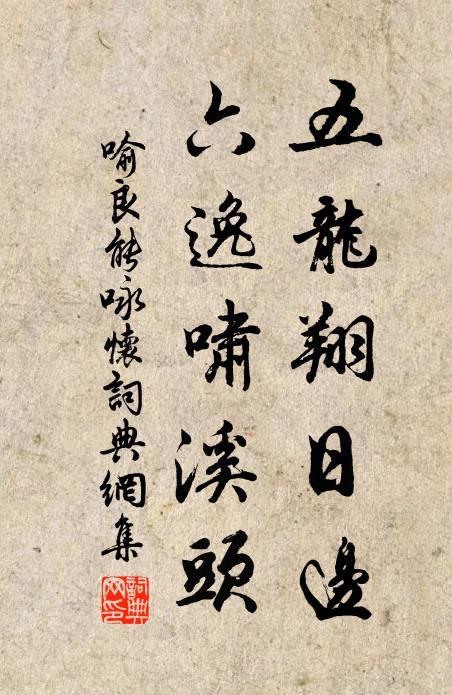 五龍翔日邊
六逸嘯溪頭
喻良能咏懷詞典網集
詞典网印